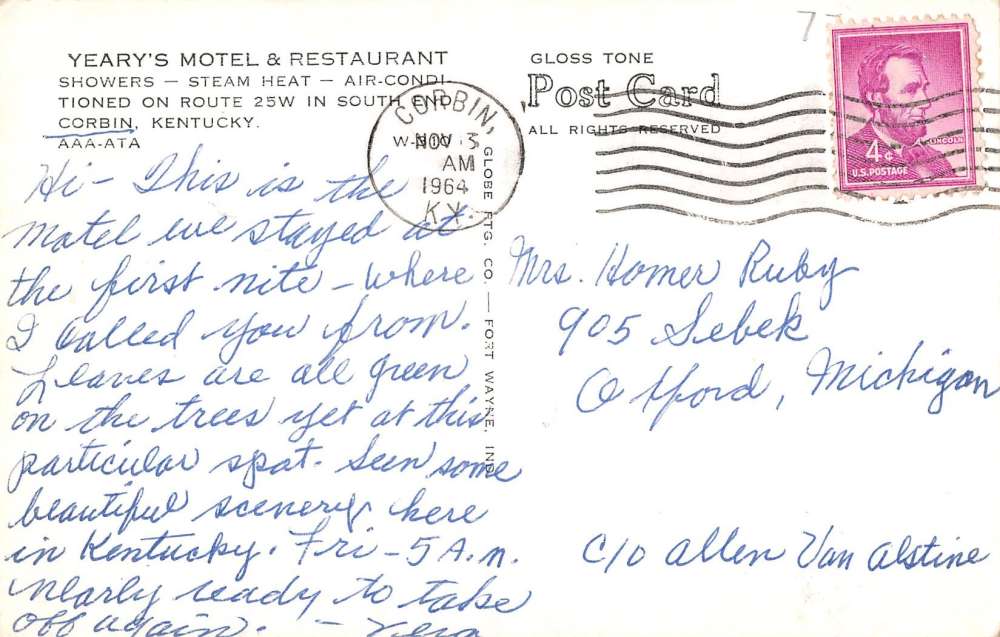 YEARY'S MOTEL & RESTAURANT
SHOWERS — STEAM HEAT — AIR-CONDI-
TIONED ON ROUTE 25W IN SOUTH END
CORBIN, KENTUCKY.
AAA-ATA
Hi – This is the
motel we stayed at
the first nite – where
I called you from.
Leaves are all green
on the trees yet at this
particular spot. Seen some
beautiful scenery here
in Kentucky. Fri – 5 A.m.
nearly ready to take
off again. – Vera
CORBIN,
NOV 3
AM
1964
KY.
GLOBE RTG. CO. — FORT WAYNE, IND
GLOSS TONE
Post Card
ALL RIGHTS RESERVED
77
LINCOLN
4¢
U.S. POSTAGE
Mrs. Homer Ruby
905 Sebek
Oxford, Michigan
c/o Allen Van Alstine